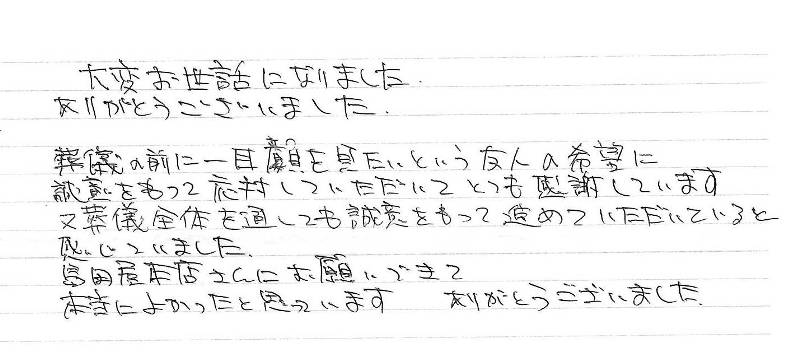 大変お世話になりました.
ありがとうございました.
葬儀の前に一目顔を見たいという友人の希望に
誠意をもって応対していただいてとても感謝しています
又葬儀全体を通しても誠意をもって進めていただいていると
感じていました.
島田屋本店さんにお願いできて
本当によかったと思っています ありがとうございました.